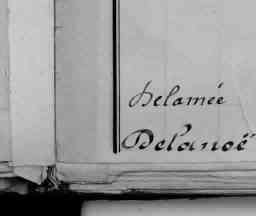 Delamée
Delanoë